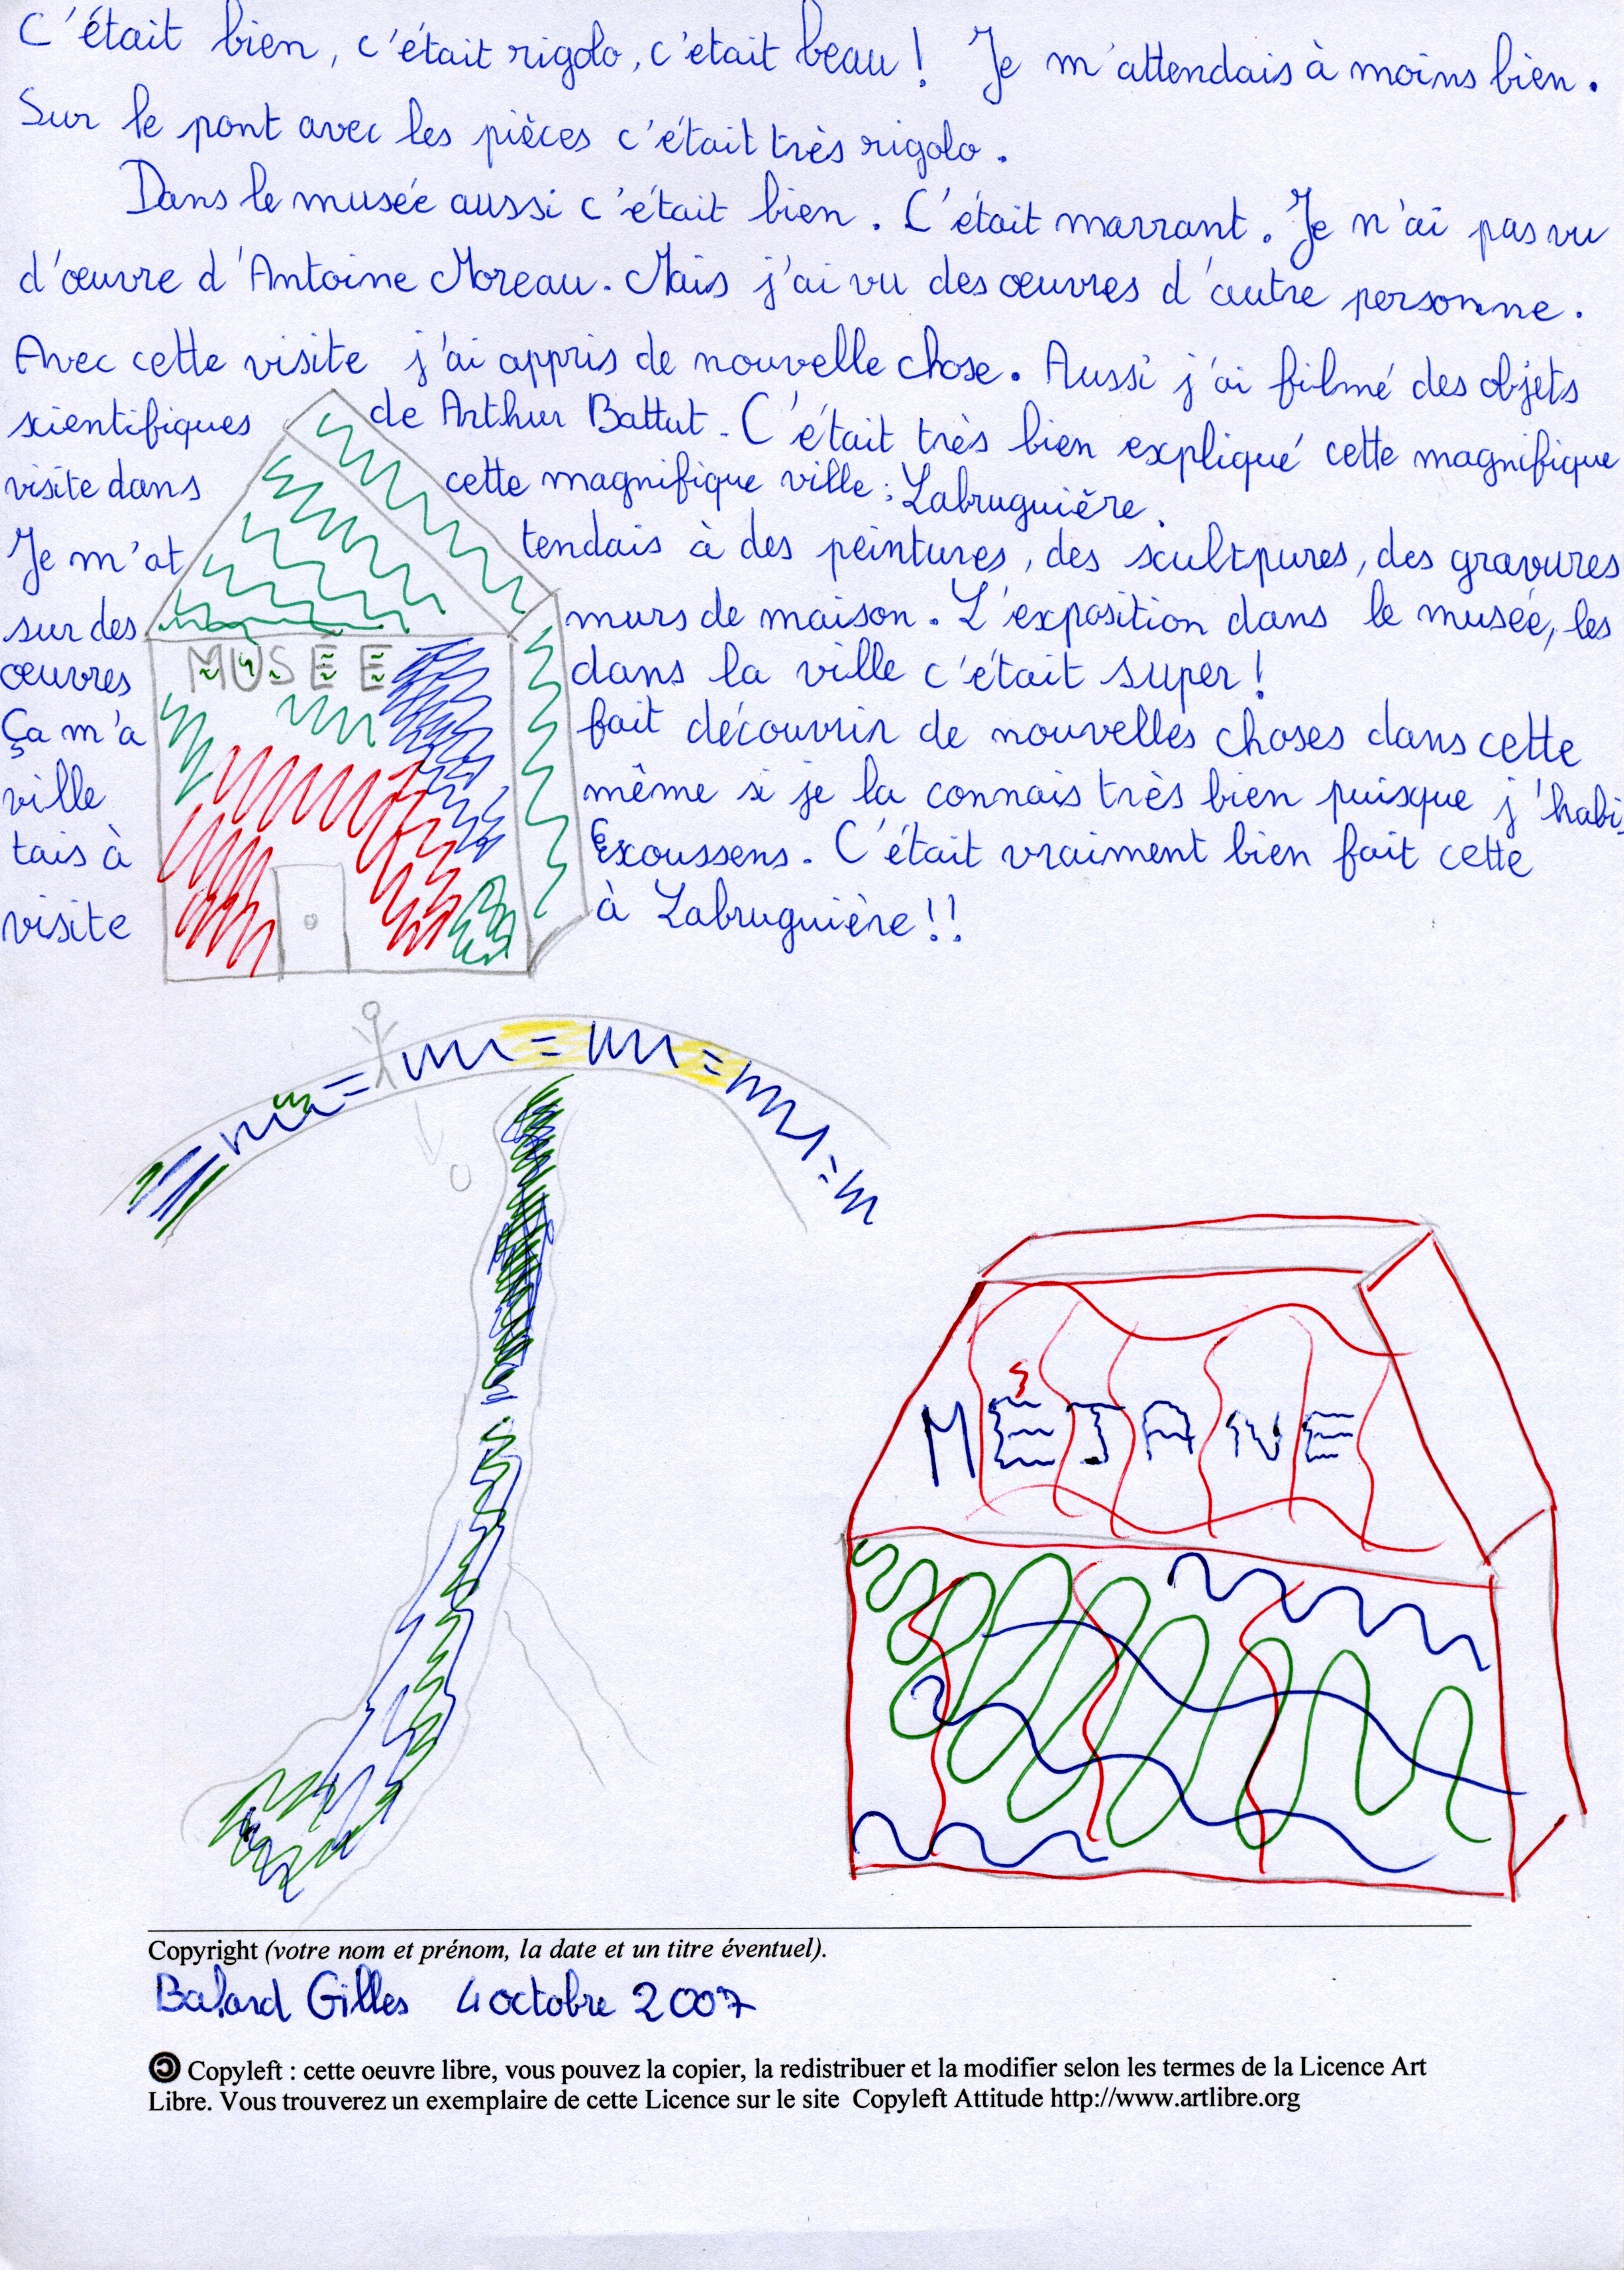 C'était bien, c'était rigolo, c'etait beau ! Je m'attendais à moins bien.
Sur le pont avec les pièces c'était très rigolo.
Dans le musée aussi c'était bien. C'était marrant. Je n'ai pas vu
d'œuvre d'Antoine Moreau. Mais j'ai vu des œuvres d'autre personne.
Avec cette visite j'ai appris de nouvelle chose. Aussi j'ai filmé des objets
scientifiques de Arthur Battut. C'était très bien expliqué cette magnifique
visite dans cette magnifique ville : Labruguière.
Je m'at tendais à des peintures, des scultpures, des gravures
sur des murs de maison. L'exposition dans le musée, les
œuvres dans la ville c'était super !
Ça m'a fait découvrir de nouvelles choses dans cette
ville même si je la connais très bien puisque j'habi
tais à Escoussens. C'était vraiment bien fait cette
visite à Labruguière !!
MUSÉE
MÉJANE
Copyright (votre nom et prénom, la date et un titre éventuel).
Balard Gilles 4 octobre 2007
Copyleft : cette oeuvre libre, vous pouvez la copier, la redistribuer et la modifier selon les termes de la Licence Art
Libre. Vous trouverez un exemplaire de cette Licence sur le site Copyleft Attitude http://www.artlibre.org